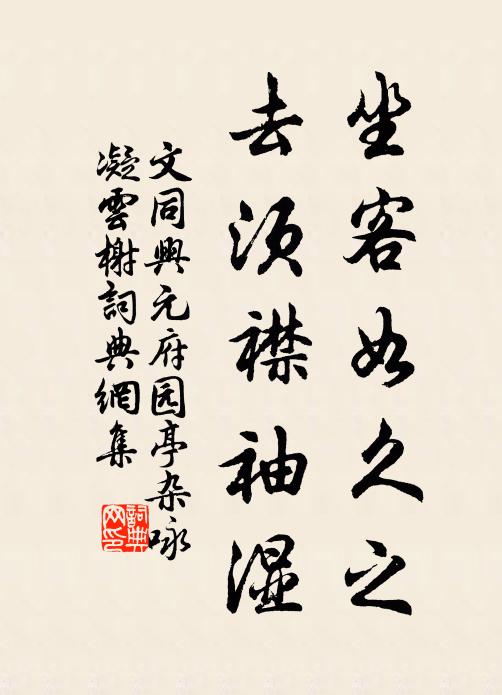 坐客如久之
去须襟袖湿
文同興元府园亭杂咏
凝雲榭詞典網集
詞典
网印